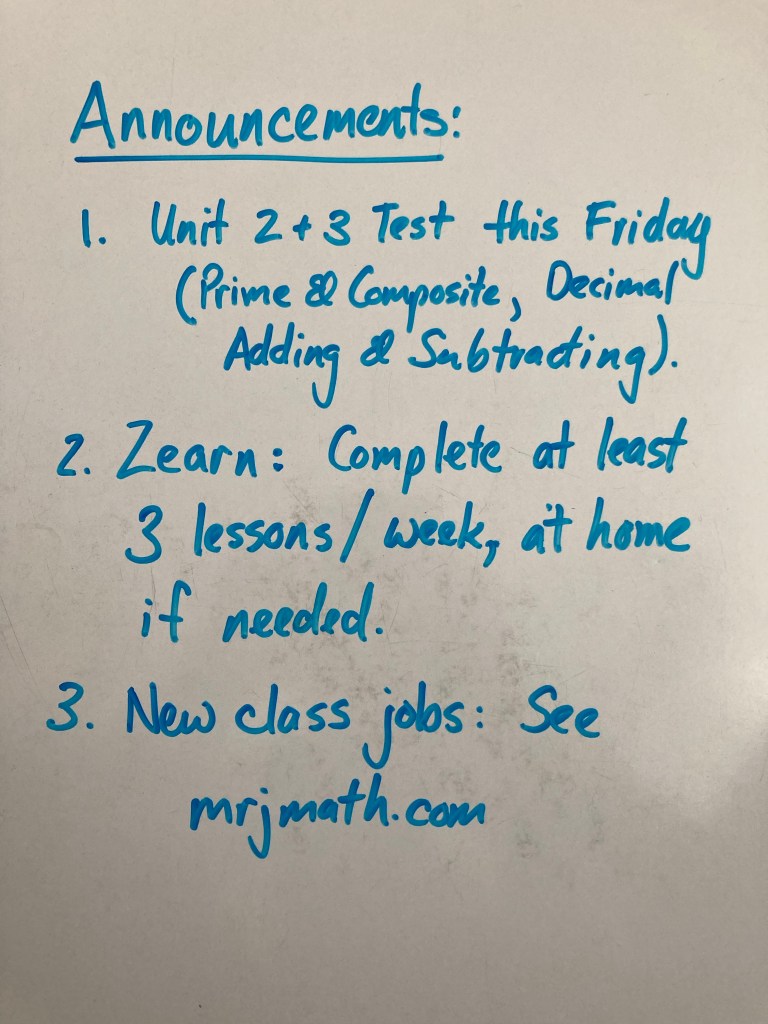 Announcements:
1. Unit 2+3 Test this Friday
(Prime & Composite, Decimal
Adding & Subtracting).
2. Zearn: Complete at least
3 lessons/week, at home
if needed.
3. New class jobs: See
mrjmath.com